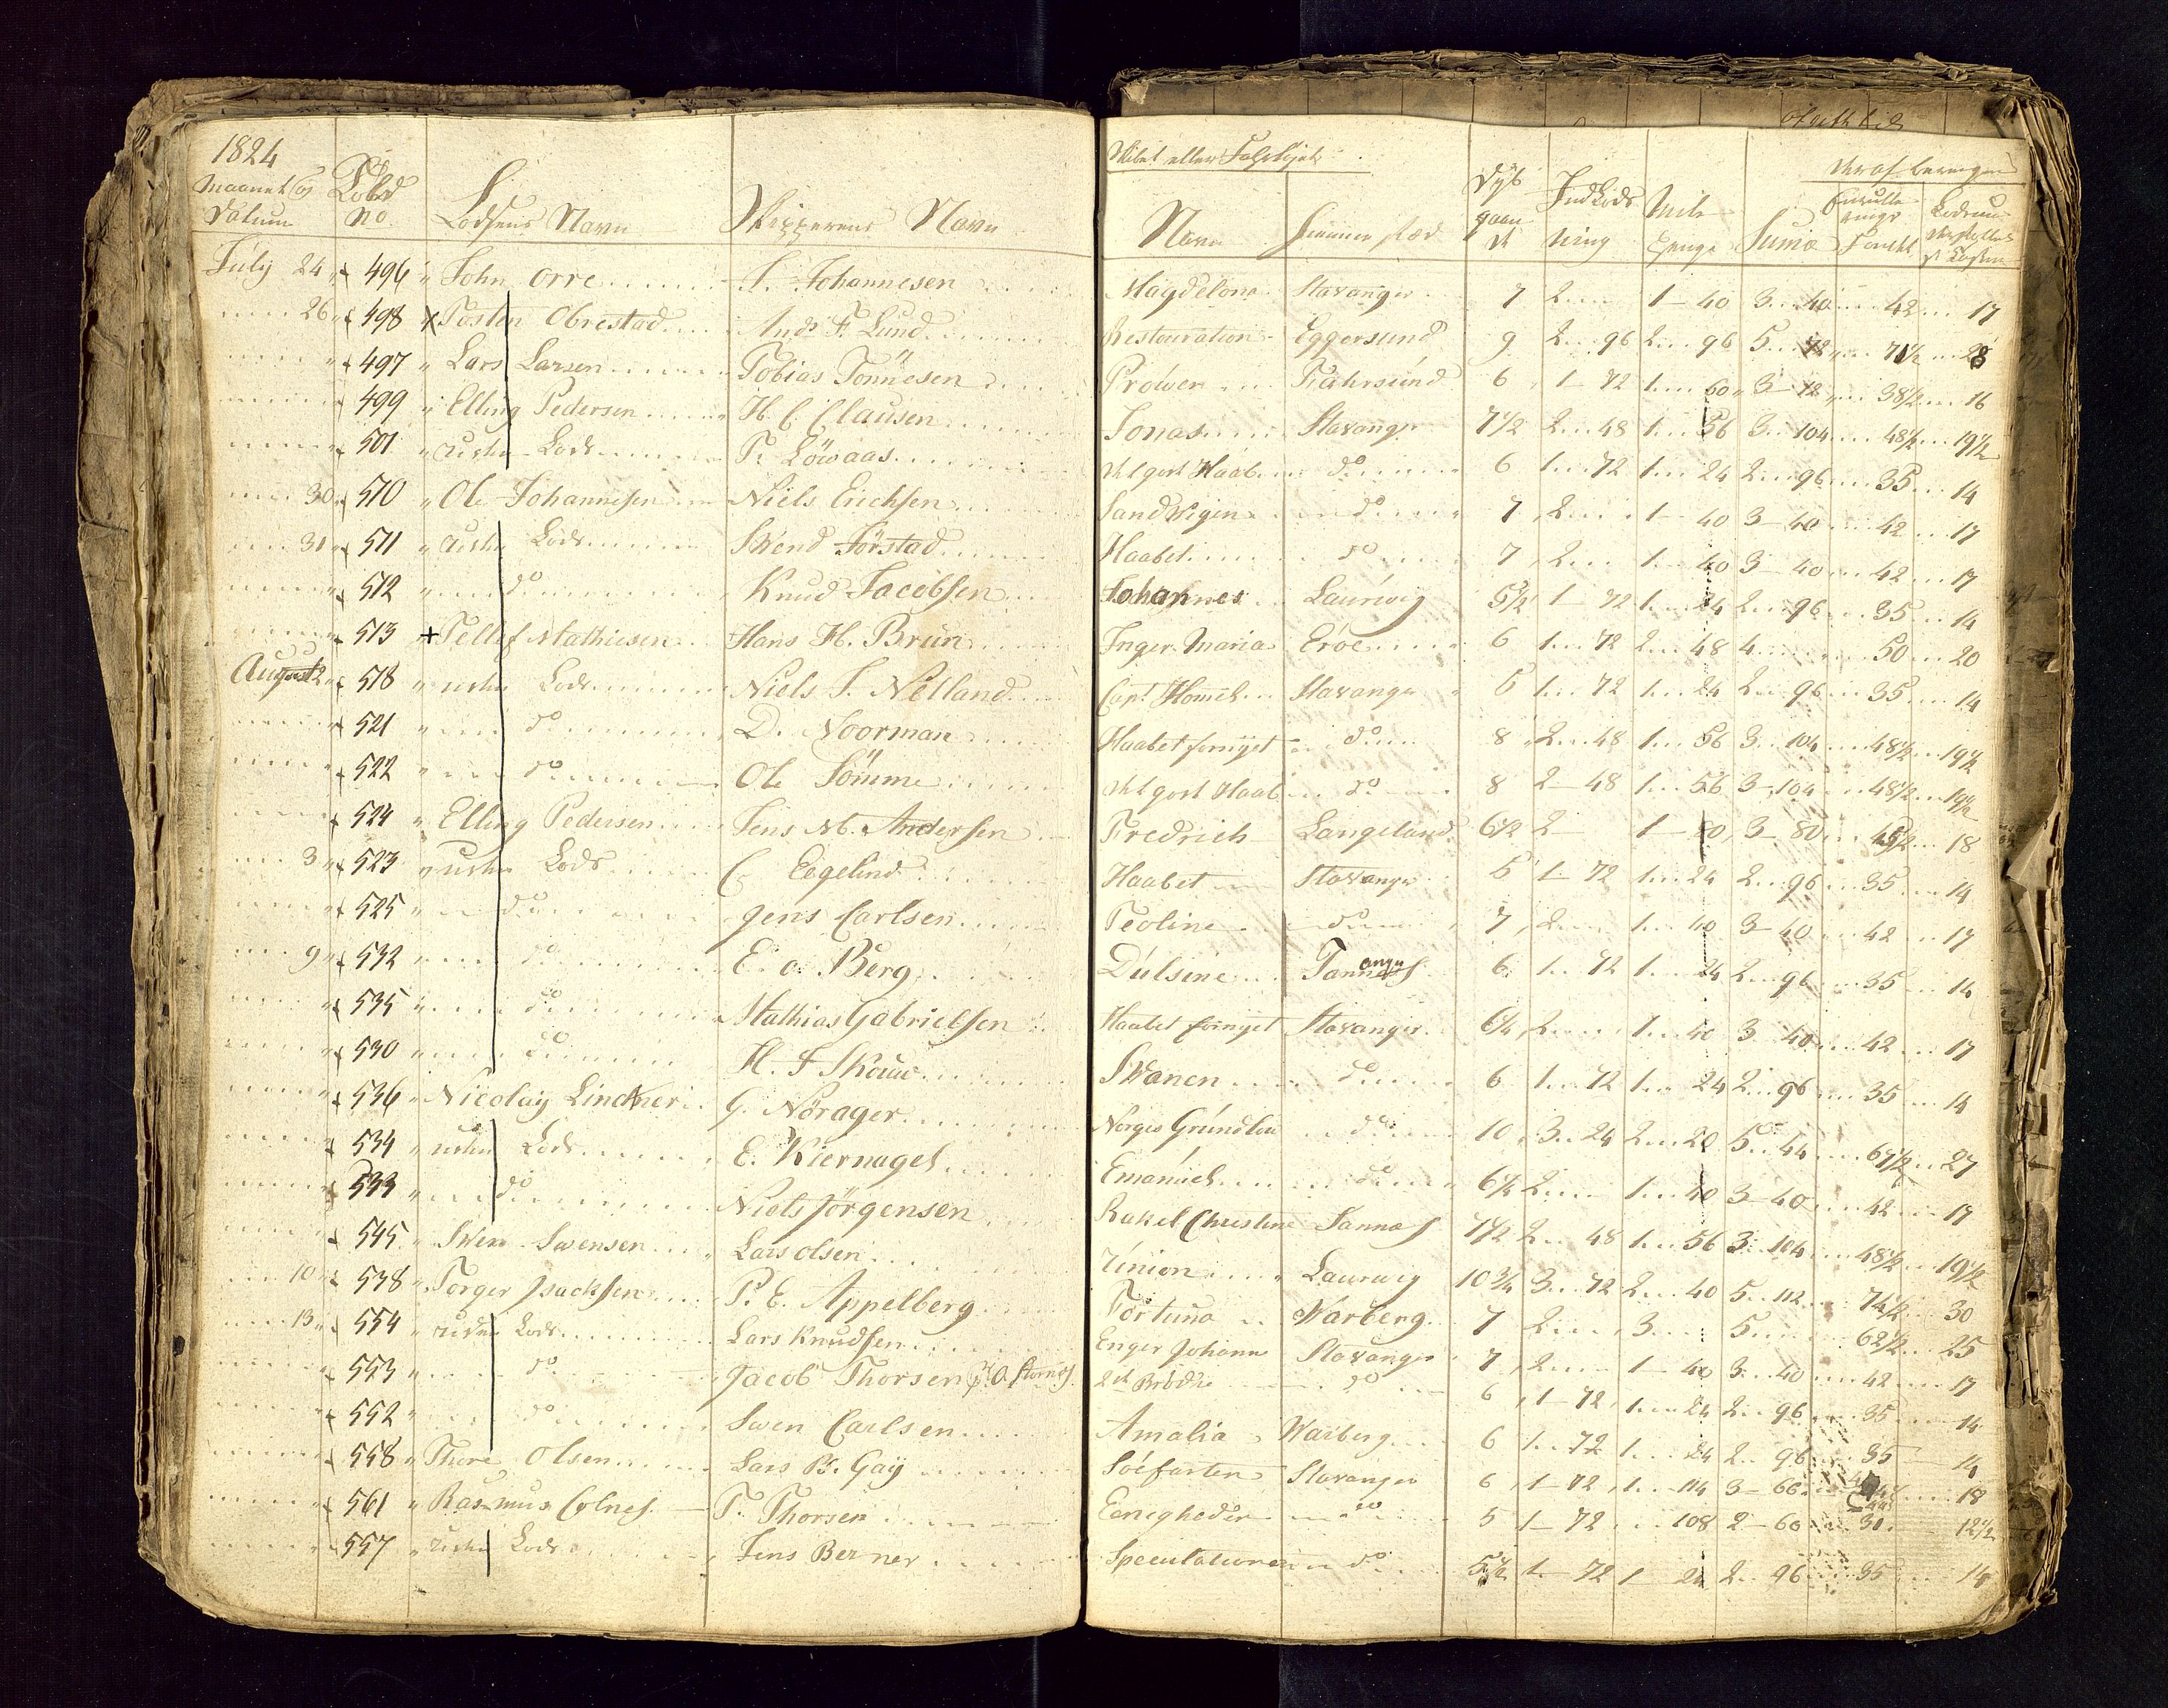 1824
Maanet og Datum
Lobd No
Lodsens Navn
Skipperens Navn
Skibet eller Fartøjets
Navn
Hiemmested
Dyb gaaende
Indlods ning
Mile Penge
Suma
Deraf beregnes
Enrulle rings Fondet
July 24 496 " John Orre J. Johannesen Magdelona Stavanger 7 2 1 40 3 40 42 17
26 498 x Tosten Obrestad And: F. Lund Restouration Eggersund 9 2 96 2 96 5 71½ 28
497 " Lars Larsen Tobias Tönnesen Pröven Fahrsund 6 1 72 1 60 3 12 38½ 16
499 " Elling Pedersen H. C. Clausen Jonas Stavanger 7½ 2 48 1 56 3 104 48½ 19½
501 " Lods T. Löwaas Det gode Haab do 6 1 72 1 24 2 96 35 14
30 510 " Ole Johannesen Niels Erichsen Sandvigen do 7 2 1 40 3 40 42 17
31 511 " Lods Svend Förstad Haabet do 7 2 1 40 3 40 42 17
512 " do Knud Jacobsen Johannes Laurwig 5½ 1 72 1 24 2 96 35 14
513 + Tellef Mathiesen Hans H. Brun Inger Maria Eröe 6 1 72 2 48 4 50 20
August 2 518 " Lods Niels J. Nelland Capt. Stavanger 5 1 72 1 24 2 96 35 14
521 " do D. Noorman Haabet fornyet do 8 2 48 1 56 3 104 48½ 19½
522 " do Ole Sömme Det gode Haab do 8 2 48 1 56 3 104 48½ 19½
524 " Elling Pedersen Jens M. Andersen Fredrich Langeland 6½ 2 1 80 3 80 18
3 523 " Lods C. Eegelind Haabet Stavanger 5 1 72 1 24 2 96 35 14
525 " do Jens Carlsen Teoline do 7 2 1 40 3 40 42 17
9 532 " do E. a. Berg Dulsine Tananger 6 1 72 1 24 2 96 35 14
535 " do Mathias Gabrielsen Haabet fornyet Stavanger 6¼ 2 1 40 3 40 42 17
530 " do H. F. Skouw Svanen do 6 1 72 1 24 2 96 35 14
536 " Nicolay Lindtner G. Nörager Norges Grundlov do 10 3 24 2 20 5 44 67½ 27
534 " Lods E. Kiernagel Emanuel do 6¼ 2 1 40 3 40 42 17
533 " do Niels Jörgensen Rakel Christine Sannes 7½ 2 48 1 56 3 104 48½ 19½
545 " Sven Svensen Lars Olsen Union Laurwig 10¾ 3 72 2 40 5 112 74½ 30
10 538 " Torger Isachsen P. E. Appelberg Fortuna Warberg 7 2 3 5 62½ 25
13 554 " Lods Lars Knudsen Enger Johanne Stavanger 7 2 1 40 3 40 42 17
553 " do Jacob Thorsen 2de Brödre do 6 1 72 1 24 2 96 35 14
552 " do Swen Carlsen Amalia Warberg 6 1 72 1 24 2 96 35 14
558 " Thore Olsen Lars B. Gaÿ Söefarten Stavanger 6 1 72 1 114 3 66 18
561 " Rasmus Colnes T. Thorsen Eenigheden do 5 1 72 108 2 60 30 12½
557 " Lods Jens Berner Speculationen do 5½ 1 72 1 24 2 96 35 14